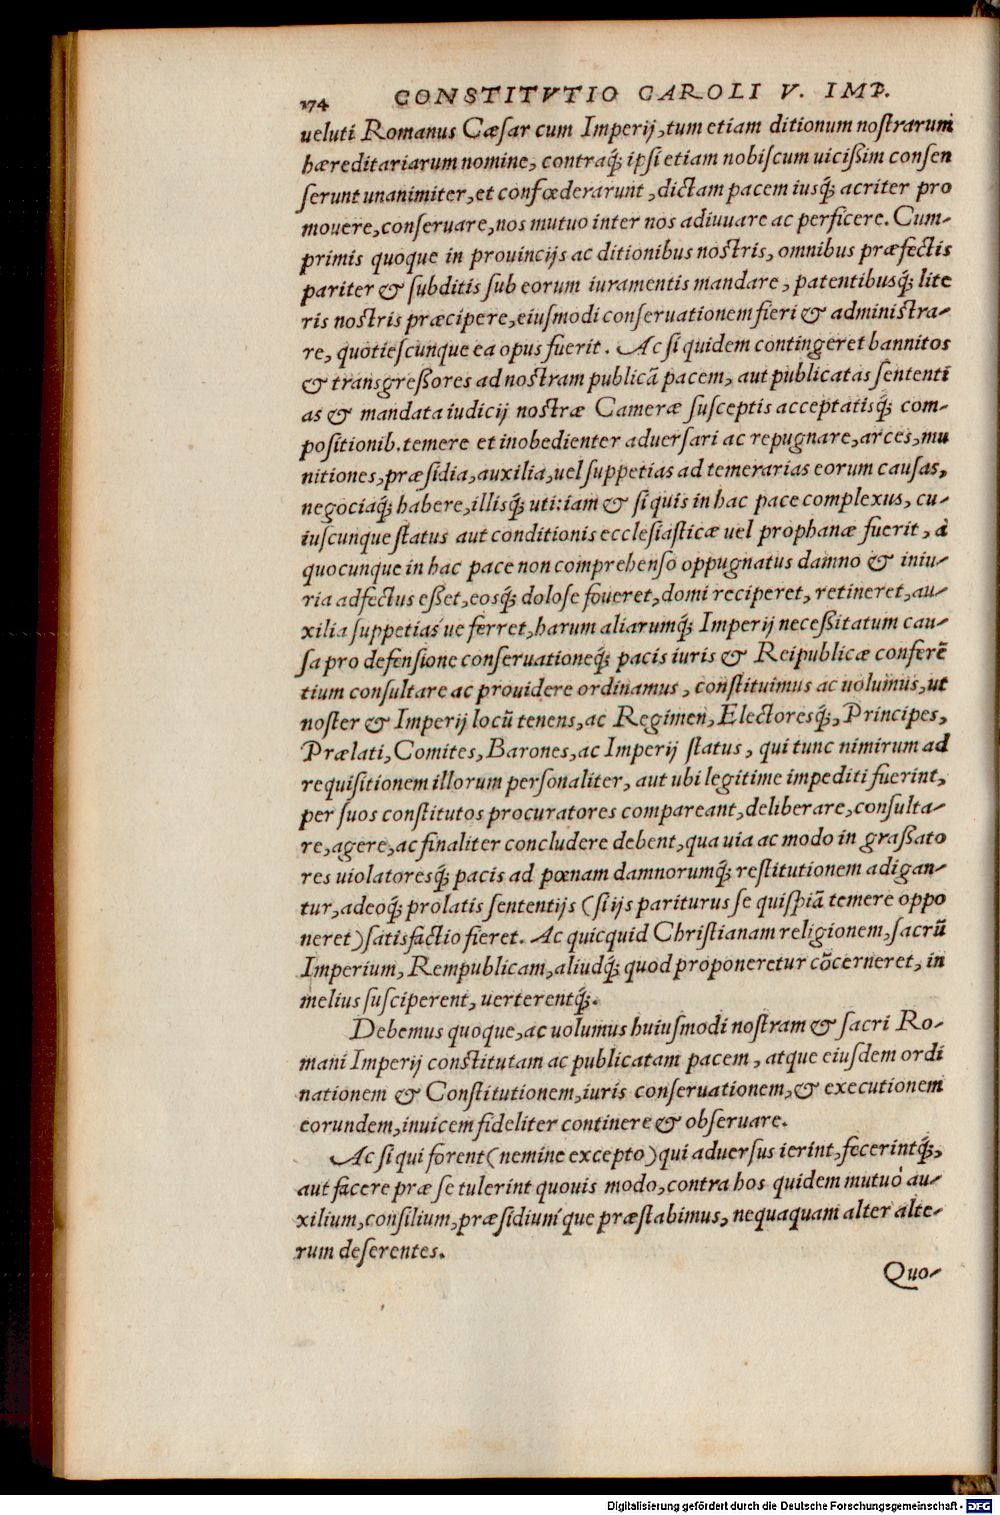 174 CONSTITVTIO CAROLI V. IMP.
ueluti Romanus Cæsar cum Imperij, tum etiam ditionum nostrarum
hæreditariarum nomine, contraq́; ipsi etiam nobiscum uicißim consen
serunt unanimiter, et confœderarunt, dictam pacem iusq́; acriter pro
mouere, conseruare, nos mutuo inter nos adiuuare ac perficere. Cum-
primis quoque in prouincijs ac ditionibus nostris, omnibus præfectis
pariter & subditis sub eorum iuramentis mandare, patentibusq́; lite
ris nostris præcipere, eiusmodi conseruationem fieri & administra-
re, quotiescunque ea opus fuerit. Ac si quidem contingeret bannitos
& transgreßores ad nostram publicã pacem, aut publicatas sententi
as & mandata iudicij nostræ Cameræ susceptis acceptatisq́; com-
positionib. temere et inobedienter aduersari ac repugnare, arces, mu
nitiones, præsidia, auxilia, uel suppetias ad temerarias eorum causas,
negociaq́; habere, illisq́; uti: iam & si quis in hac pace complexus, cu-
iuscunque status aut conditionis ecclesiasticæ uel prophanæ fuerit, à
quocunque in hac pace non comprehenso oppugnatus damno & iniu-
ria adfectus eßet, eosq́; dolose foueret, domi reciperet, retineret, au-
xilia suppetias ue ferret, harum aliarumq́; Imperij neceßitatum cau-
sa pro defensione conseruationeq́; pacis iuris & Reipublicæ conferẽ
tium consultare ac prouidere ordinamus, constituimus ac uolumus, ut
noster & Imperij locũ tenens, ac Regimen, Electoresq́;, Principes,
Prælati, Comites, Barones, ac Imperij status, qui tunc nimirum ad
requisitionem illorum personaliter, aut ubi legitime impediti fuerint,
per suos constitutos procuratores compareant, deliberare, consulta-
re, agere, ac finaliter concludere debent, qua uia ac modo in graßato
res uiolatoresq́; pacis ad pœnam damnorumq́; restitutionem adigan-
tur, adeoq́; prolatis sententijs (si ijs pariturus se quispiã temere oppo
neret) satisfactio fieret. Ac quicquid Christianam religionem, sacrũ
Imperium, Rempublicam, aliudq́; quod proponeretur cõcerneret, in
melius susciperent, uerterentq́;.
Debemus quoque, ac uolumus huiusmodi nostram & sacri Ro-
mani Imperij constitutam ac publicatam pacem, atque eiusdem ordi
nationem & Constitutionem, iuris conseruationem, & executionem
eorundem, inuicem fideliter continere & obseruare.
Ac si qui forent (nemine excepto) qui aduersus ierint, fecerintq́;,
aut facere præ se tulerint quouis modo, contra hos quidem mutuò au-
xilium, consilium, præsidium que præstabimus, nequaquam alter alte-
rum deserentes.
Quo-
Digitalisierung gefördert durch die Deutsche Forschungsgemeinschaft - DFG